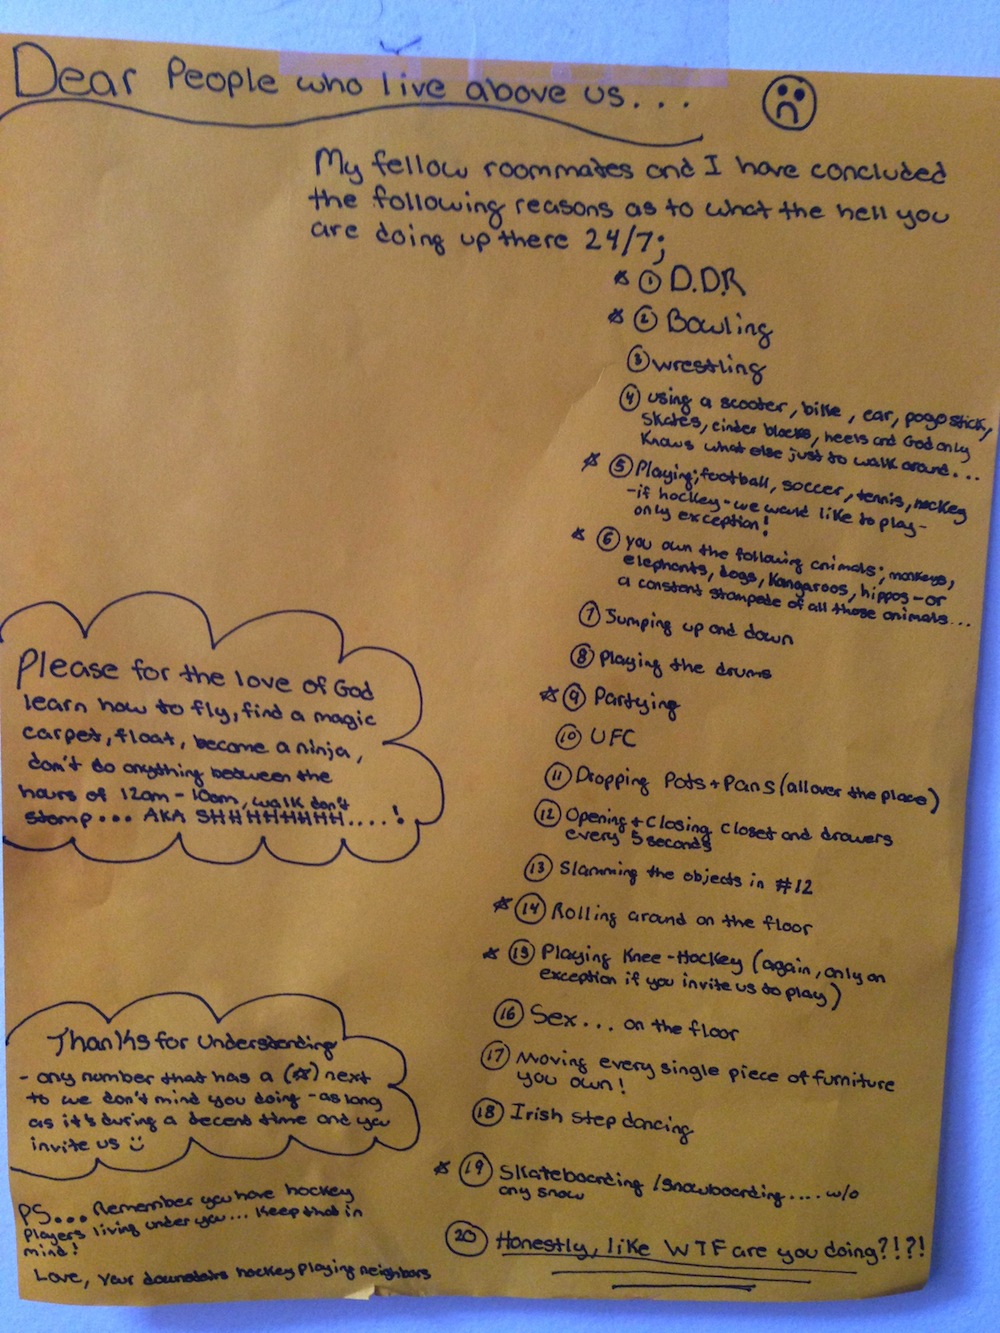 Dear People who live above us...
My fellow roommates and I have concluded
the following reasons as to what the hell you
are doing up there 24/7;
☆ ① D.D.R
☆ ② Bowling
③ wrestling
④ using a scooter, bike, car, pogo stick,
skates, cinder blocks, heels and God only
knows what else just to walk around...
☆ ⑤ Playing; football, soccer, tennis, hockey
-if hockey-we would like to play-
only exception!
☆ ⑥ you own the following animals; monkeys,
elephants, dogs, kangaroos, hippos-or
a constant stampede of all those animals...
⑦ Jumping up and down
⑧ Playing the drums
☆ ⑨ Partying
⑩ UFC
⑪ Dropping Pots + Pans (all over the place)
⑫ Opening + Closing closet and drawers
every 5 seconds
⑬ Slamming the objects in #12
☆ ⑭ Rolling around on the floor
☆ ⑮ Playing Knee-Hockey (again, only an
exception if you invite us to play)
⑯ Sex... on the floor
⑰ Moving every single piece of furniture
you own!
⑱ Irish step dancing
☆ ⑲ Skateboarding /snowboarding.... w/o
any snow
⑳ Honestly, like WTF are you doing?!?!
Please for the love of God
learn how to fly, find a magic
carpet, float, become a ninja,
don't do anything between the
hours of 12am - 10am, walk don't
stomp... AKA SHHHHHHHH....!
Thanks for Understanding
- any number that has a (☆) next
to we don't mind you doing - as long
as it's during a decent time and you
invite us :)
PS... Remember you have hockey
players living under you... Keep that in
mind!
Love, Your downstairs hockey playing neighbors